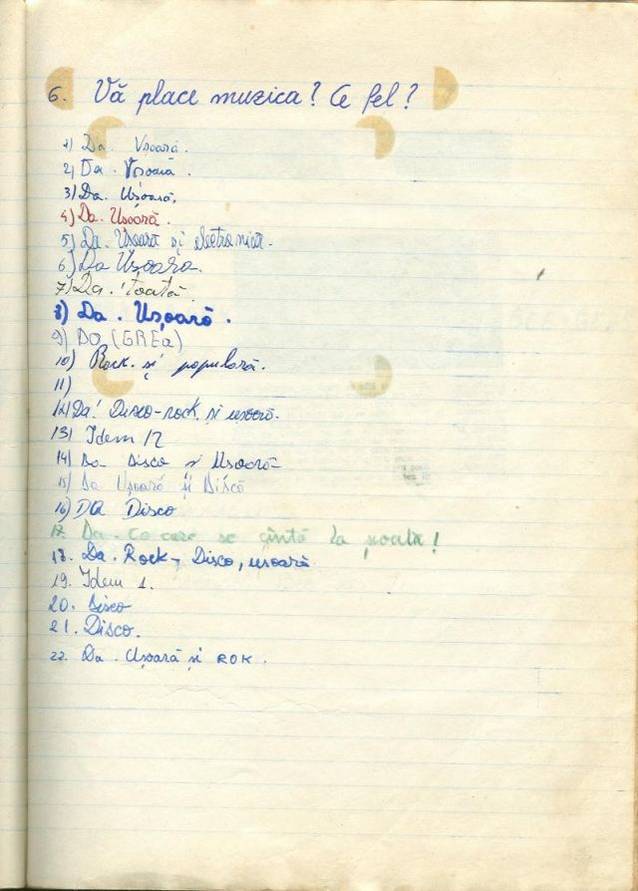 6. Vă place muzica? Ce fel?
1) Da. Ușoară.
2) Da. Ușoară.
3) Da. Ușoară.
4) Da. Ușoară.
5) Da. Ușoară și electronică.
6) Da Ușoara.
7) Da. toată.
8) Da. Ușoară.
9) DA (GREa)
10) Rock. și populară.
11)
12) Da! Disco-rock și ușoară.
13) Idem 12
14) Da Disco și Ușoară
15) Da Ușoară și Disco
16) DA Disco
17. Da. Ca care se cîntă la școală!
18. Da. Rock-, Disco, ușoară
19. Idem 1.
20. Disco
21. Disco.
22. Da. Ușoară și ROK.